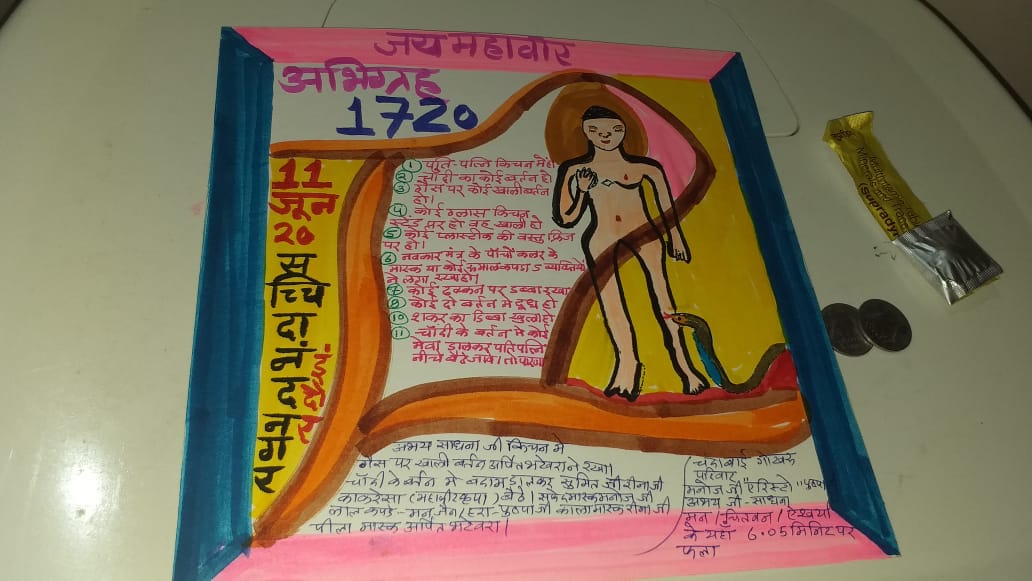 जय महावीर
अभिग्रह
1720
11
जून
20
रमन ददा भंदा सच्चि
इंदौर
① पति-पत्नि किचन में हो
② चाँदी का कोई बर्तन हो
③ गैस पर कोई खाली बर्तन
हो।
④ कोई ग्लास किचन
स्टैंड पर हो वह खाली हो
⑤ कोई प्लास्टीक की वस्तु फ्रिज
पर हो।
⑥ नवकार मंत्र के पाँचों कलर के
मास्क या कोई रूमाल कपडा 5 व्यक्तियों
ने लगा रखा हो।
⑦ कोई ढक्कन पर डब्बा रखा
⑧ कोई दो बर्तन मे दूध हो
⑩ शकर का डिब्बा खुला हो
⑪ चाँदी के बर्तन मे कोई
मेवा डालकर पति पत्नि
नीचे बैठ जावे। तो पारणा
अभय साधना जी किचन मे
गैस पर खाली बर्तन अर्पित भटेवरा ने रखा।
चाँदी के बर्तन मे बदाम डालकर सुमित जी रीना जी
काकरेचा (महावीर कृपा) बैठे। सफेद मास्क मनोज जी
लाल कपडे- मनु जैन/हरा- पुष्पा जी काला मास्क रीना जी
पीला मास्क अर्पित भटेवरा।
चंदाबाई गोखरू
परिवार
मनोज जी "एरिस्टो" पुष्पा
अभय जी - साधना
मान / चितवन / ऐश्वर्या
के यहाँ 6.05 मिनिट पर
फला
Supradyn